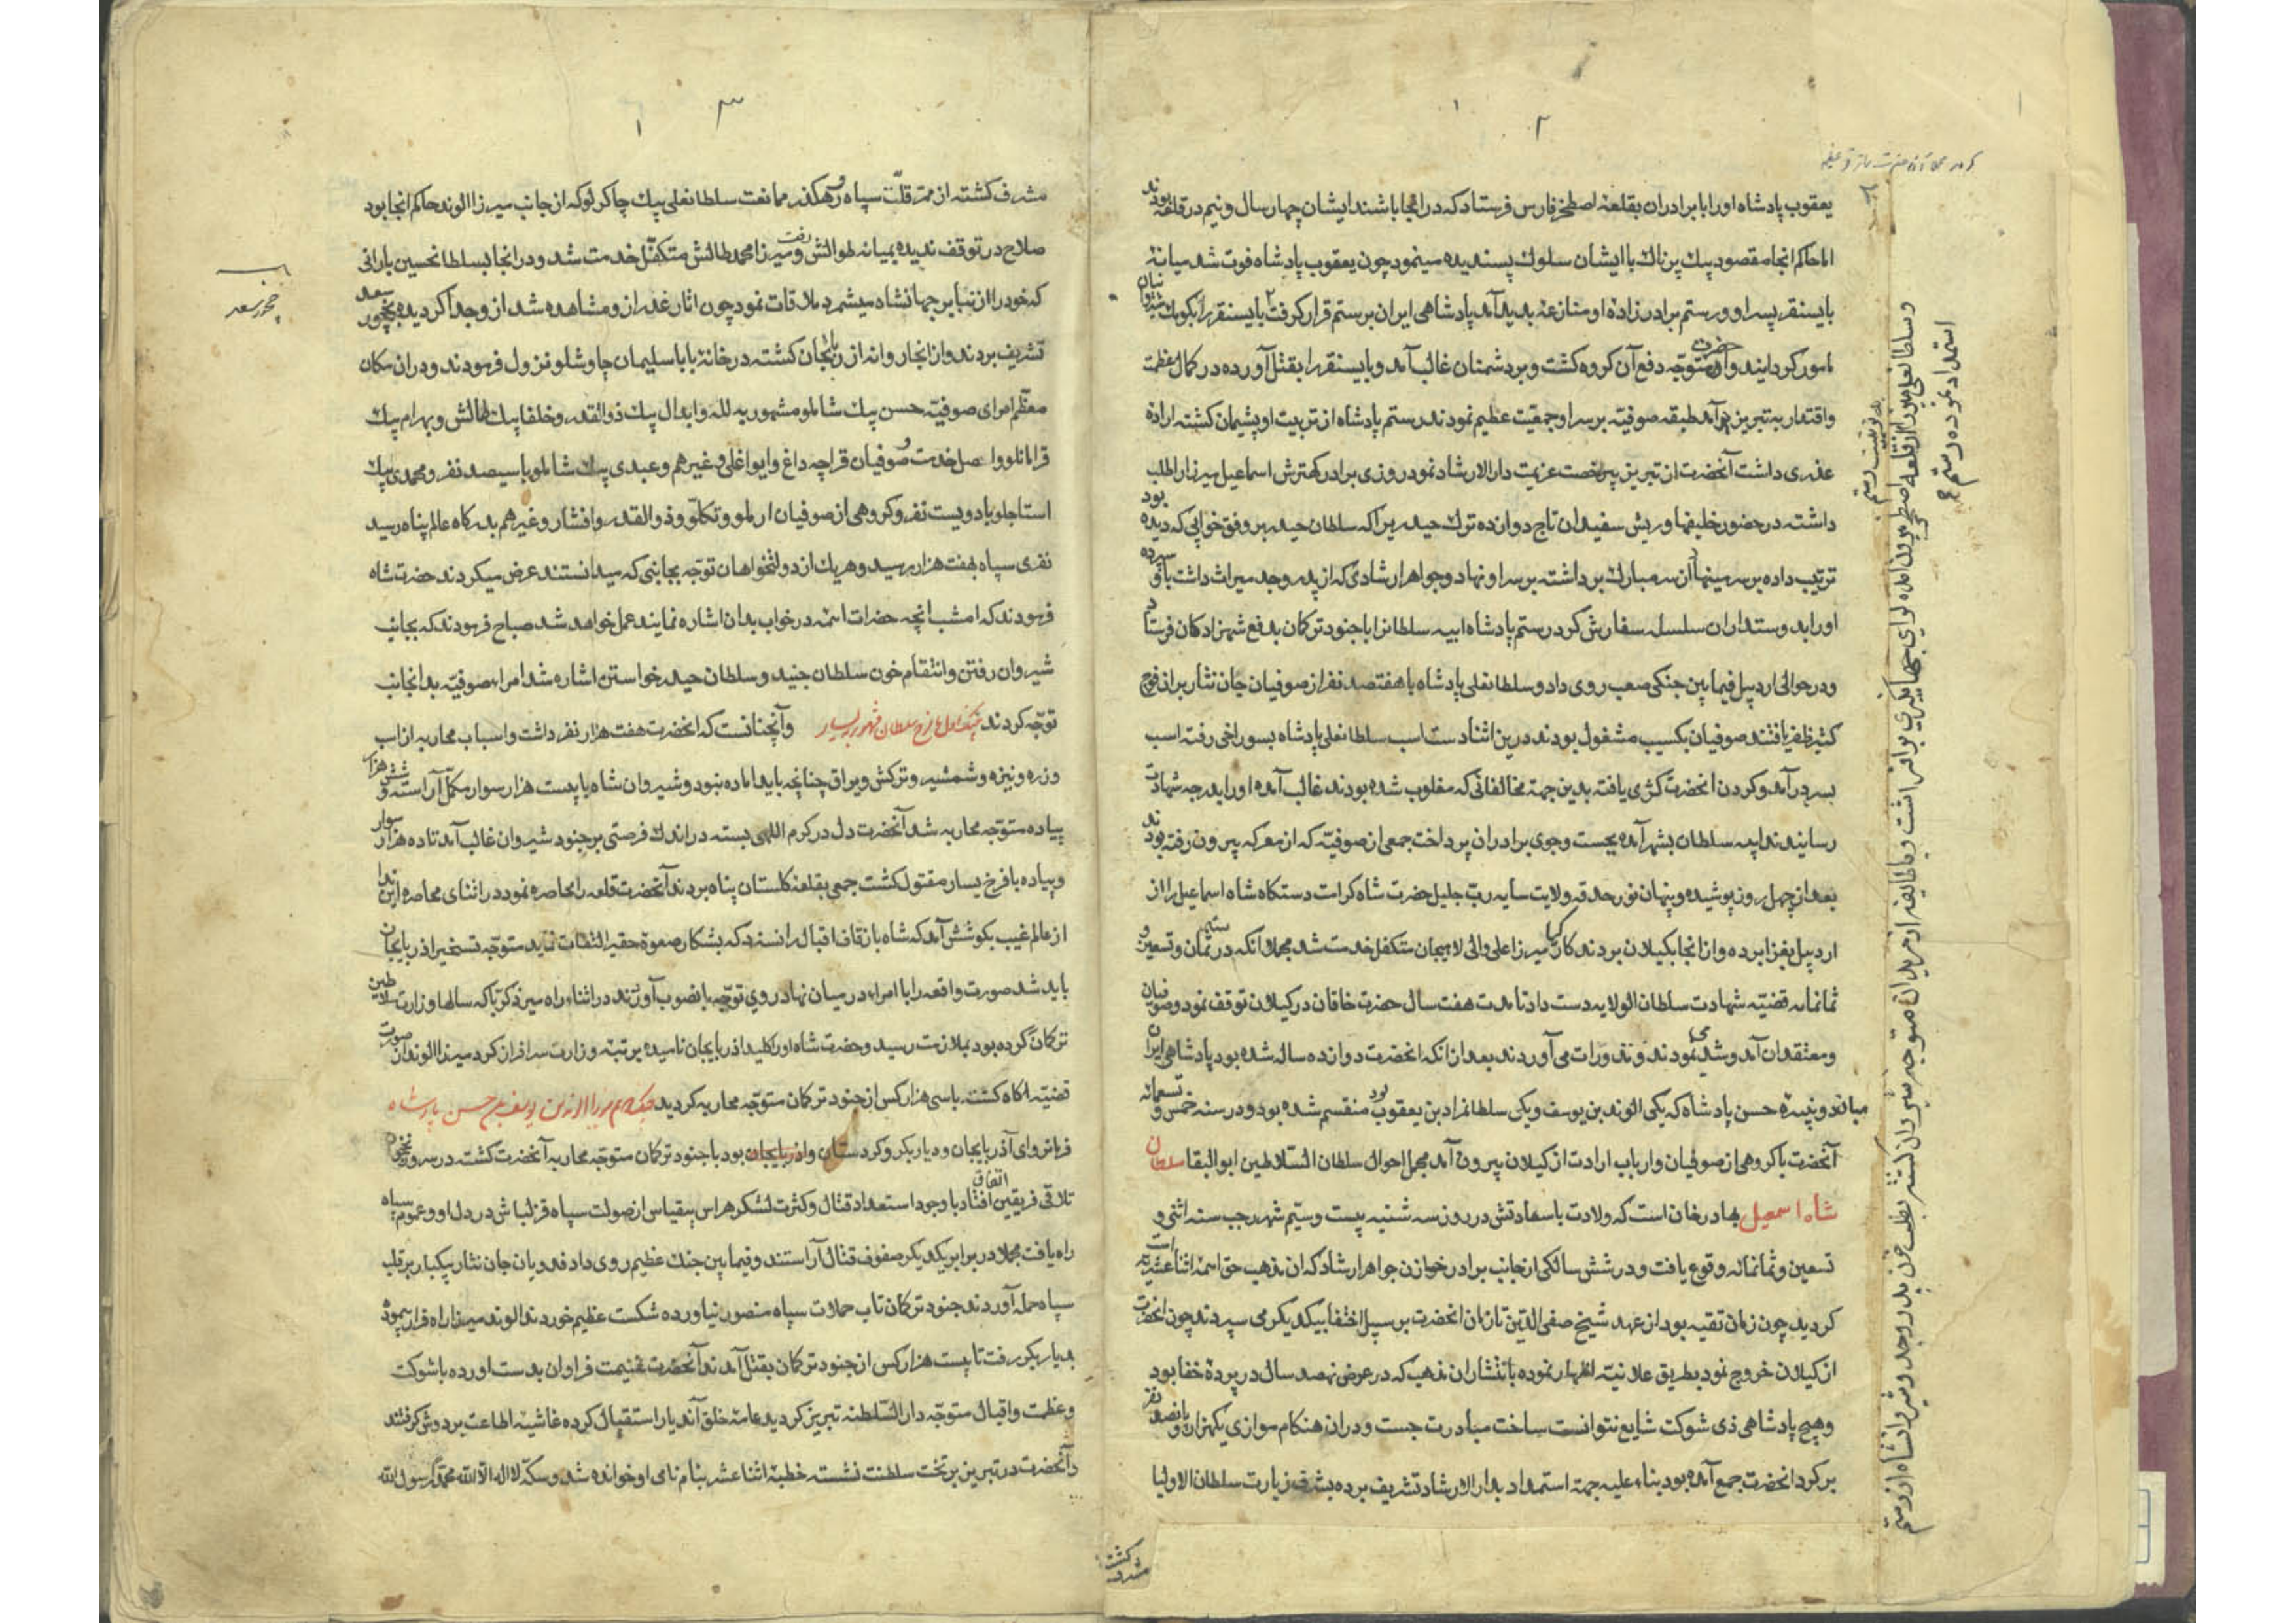 ۲
یعقوب پادشاه اورا با برادران بقلعهٔ اصطخر فارس فرستاد که در انجا باشند ایشان چهار سال و نیم در قلعه بودند
اما حاکم انجا مقصود بیك پرناك با ایشان سلوك پسندیده مینمود چون یعقوب پادشاه فوت شد میانهٔ
بایسنقر پسر او و رستم برادر زادهٔ او منازعه بدید آمد پادشاهی ایران بر رستم قرار گرفت بایسنقر را بکومك شیروانیان
مامور کردانیدند و آنحضرت متوجّه دفع آن کروه کشت و بر دشمنان غالب آمد و بایسنقر را بقتل آورده در کمال عظمت
واقتدار به تبریز درآمد طبقه صوفیّه بر سر او جمعیّت عظیم نمودند رستم پادشاه از تربیت او پشیمان کشته اراده
عذری داشت آنحضرت از تبریز برخصت عزیمت دار الارشاد نمود روزی برادر کهترش اسماعیل میرزا را طلب
داشته در حضور خلیفها و ریش سفیدان تاج دوازده ترك حیدریرا که سلطان حیدر بر وفق خوابی که دیده بود
ترتیب داده بر سر مینهاد از سر مبارك برداشته بر سر او نهاد و جواهر ارشادی که از پدر و جد میراث داشت باو سپرده
اورا بدوستداران سلسله سفارش کرد رستم پادشاه ابیه سلطانرا با جنود ترکمان بدفع شهزادکان فرستاد
و در حوالی اردبیل فیمابین جنکی صعب روی داد و سلطانعلی پادشاه با هفتصد نفر از صوفیان جان نثار بران فوج
کثیر ظفر یافتند صوفیان بکسیب مشغول بودند درین اثنا دست اسب سلطانعلی پادشاه بسوراخی رفته اسب
بسر درآمد و کردن انحضرت کژی یافته بدین جهة مخالفانی که مغلوب شده بودند غالب آمده اورا بدرجه شهادت
رسانیدند ابیه سلطان بشهر آمده بجست وجوی برادران پرداخت جمعی از صوفیّه که از معرکه بیرون رفته بودند
بعد از چهل روز پوشیده و پنهان نور حدقه ولایت سایه رب جلیل حضرت شاه کرامت دستکاه شاه اسماعیل را از
اردبیل بغزا برده و از انجا بکیلان بردند کارکیا میرزا علی والی لاهیجان متکفل خدمت شد مجملا انکه در ثمان و تسعین و
ثمانمایه قضیّه شهادت سلطان الولایه دست داد تا مدت هفت سال حضرت خاقان در کیلان توقف نمود و صوفیان
و معتقدان آمد و شد می نمودند و نذورات می آوردند بعد از انکه انحضرت دوازده ساله شده بود پادشاهی ایران
میانه دو نبیرهٔ حسن پادشاه که یکی الوند بن یوسف و یکی سلطانمراد بن یعقوب بود منقسم شده بود و در سنه خمس و تسعمائه
آنحضرت با کروهی از صوفیان و ارباب ارادت از کیلان بیرون آمد مجمل احوال سلطان السّلاطین ابوالبقا سلطان
شاه اسمعیل بهادرخان است که ولادت با سعادتش در روز سه شنبه بیست و سیّم شهر رجب سنه اثنی و
تسعین و ثمانمائه وقوع یافت و در شش سالکی از جانب برادر خازن جواهر ارشاد که ان مذهب حق ائمهٔ اثنا عشریه است
کردید چون زمان تقیه بود از عهد شیخ صفی الدّین تا زمان انحضرت بر سبیل اختفا بیکدیکر می سپردند چون انحضرت
از کیلان خروج نمود بطریق علانیّه اظهار نموده بانتشار ان مذهب که در عرض نهصد سال در پردهٔ خفا بود
و هیچ پادشاهی ذی شوکت شایع نتوانست ساخت مبادرت جست و دران هنکام موازی یکهزار و پانصد نفر
بر کرد انحضرت جمع آمده بود بناء علیه جهة استمداد بدار الارشاد تشریف برده بشرف زیارت سلطان الاولیا
وسلطانعلی میرزا از قلعه اصطخر بیرون امده لوای جهانگیری بر افراشت و با طایفه از مریدان متوجه شیروان کشته بطلب خون پدر و جد و شیروانشاه از رستم
استمداد نموده رستم
مشرف کشت
۳
مشرف کشته از ممر قلّت سپاه و رهکذر ممانعت سلطانعلی بیك چاکرلو که از جانب میرزا الوند حاکم انجا بود
صلاح در توقف ندیده بمیانه طوالش رفت و میرزا محمد طالش متکفّل خدمت شد و در انجا بسلطانحسین بارانی
که خود را از نبایر جهانشاه میشمرد ملاقات نمود چون اثار غدر از و مشاهده شد از وجدا کردیده بچخور سعد
تشریف بردند و از انجا روانه ارزنجان کشته در خانهٔ بابا سلیمان چاوشلو نزول فرمودند و دران مکان
معظم امرای صوفیّه حسن بیك شاملو مشهور به لله و ابدال بیك ذوالقدر و خلفا بیك طالش و بهرام بیك
قرامانلو واصل خدمت و صوفیان قراچه داغ و ایواغلی و غیرهم و عبدی بیك شاملو با سیصد نفر و محمدی بیك
استاجلو با دویست نفر و کروهی از صوفیان ارملو و تکلّو و ذوالقدر و افشار و غیرهم بدرکاه عالم پناه رسید
نفری سپاه بهفت هزار رسید و هریك از دولتخواهان توجّه بجانبی که میدانستند عرض میکردند حضرت شاه
فرمودند که امشب انچه حضرات ائمّه در خواب بدان اشاره نمایند عمل خواهد شد صباح فرمودند که بجانب
شیروان رفتن و انتقام خون سلطان جنید و سلطان حیدر خواستن اشاره شد امراء صوفیّه بدانجانب
توجّه کردند جنك اول با فرخ سلطان مشهور بیسار وآنچنانست که انحضرت هفت هزار نفر داشت و اسباب محاربه از اسب
و زره و نیزه و شمشیر و ترکش و یراق چنانچه باید اماده نبود و شیروان شاه با بیست هزار سوار مکمّل آراسته و شش هزار
پیاده متوجّه محاربه شد آنحضرت دل در کرم اللهی بسته در اندك فرصتی بر جنود شیروان غالب آمد تا ده هزار سوار
و پیاده با فرخ یسار مقتول کشت جمعی بقلعهٔ کلستان پناه بردند آنحضرت قلعه را محاصره نمود در اثنای محاصره این ندا
از عالم غیب بکوشش آمد که شاه باز قاف اقبال را نسزد که بشکار صعوهٔ حقیر التفات نماید متوجّه تسخیر اذربایجان
باید شد صورت واقعه را با امراء در میان نهاد روی توجّه بانصوب آوردند در اثناء راه میر ذکریّا که سالها وزارت سلاطین
ترکمان کرده بود بملازمت رسید و حضرت شاه اورا کلید اذربایجان نامیده برتبهٔ وزارت سرافراز کرد میرزا الوند از صورت
قضیّه اکاه کشته با سی هزار کس از جنود ترکمان متوجّه محاربه کردید جنك دویم میرزا الوند بن یوسف بن حسن پادشاه
فرمانروای آذربایجان و دیاربکر و کردستان واذربایجان بود با جنود ترکمان متوجّه محاربه آنحضرت کشته در سرور نخجوان
تلاقی فریقین اتفاق افتاد با وجود استعداد قتال و کثرت لشکر هراس بیقیاس از صولت سپاه قزلباش در دل او و عموم سپاه
راه یافت مجملا در برابر یکدیکر صفوف قتال آراستند و فیمابین جنك عظیم روی داد فدویان جان نثار بیکبار بر قلب
سپاه حمله آوردند جنود ترکمان تاب حملات سپاه منصور نیاورده شکست عظیم خوردند الوند میرزا راه فرار پیموده
بدیاربکر رفت تا بیست هزار کس از جنود ترکمان بقتل آمدند آنحضرت غنیمت فراوان بدست اورده با شوکت
و عظمت و اقبال متوجّه دار السّلطنه تبریز کردید عامهٔ خلق آن دیار استقبال کرده غاشیهٔ اطاعت بر دوش کرفتند
و آنحضرت در تبریز بر تخت سلطنت نشسته خطبهٔ اثنا عشر بنام نامی او خوانده شد و سکهٔ لااله الّا الله محمد رسول الله
چخور سعد